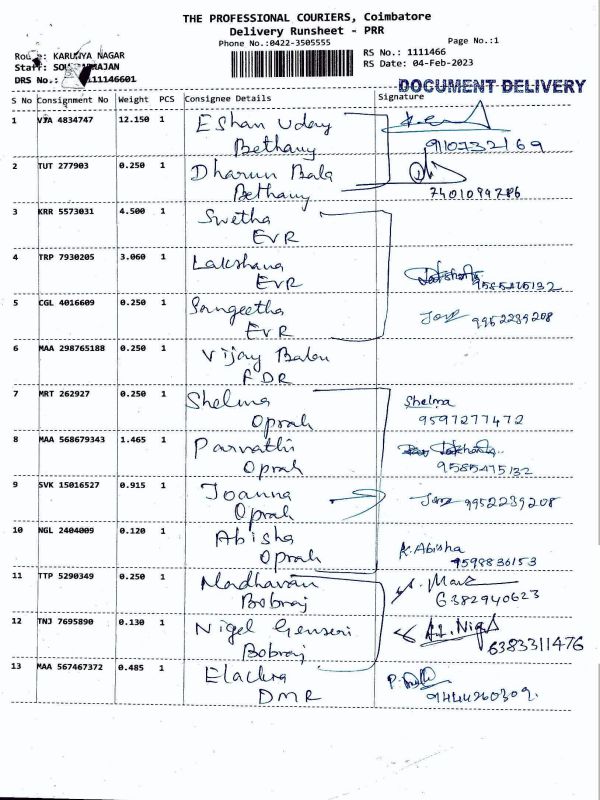 THE PROFESSIONAL COURIERS, Coimbatore
Delivery Runsheet - PRR
Phone No.:0422-3505555
Page No.:1
KARUNYA NAGAR
RS No.: 1111466
DRS No.: 11146601
RS Date: 04-Feb-2023
DOCUMENT DELIVERY
S No Consignment No Weight PCS Consignee Details Signature
1 VJA 4834747 12.150 1 Eshan Uday
Bethany 910732169
2 TUT 277903 0.250 1 Dharun Bala
Bethany 7401099786
3 KRR 5573031 4.500 1 Swetha
EVR
4 TRP 7930205 3.060 1 Lakshana
EVR 9585475132
5 CGL 4016609 0.250 1 Sangeetha
EVR 9952239208
6 MAA 298765188 0.250 1 Vijay Balan
FDR
7 MRT 262927 0.250 1 Shelma Shelma
Oprah 9597277472
8 MAA 568679343 1.465 1 Parvathi
Oprah 9585475132
9 SVK 15016527 0.915 1 Joanna 9952239208
Oprah
10 NGL 2404009 0.120 1 Abisha A. Abisha
Oprah 9598836153
11 TTP 5290349 0.250 1 Madhavan
Bobraj 6382940623
12 TNJ 7695890 0.130 1 Nigel Genseri
Bobraj 6383311476
13 MAA 567467372 0.485 1 Elackra
DMR 9444260309.